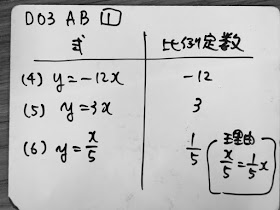 D03 AB 1
式 比例定数
(4) y=-12x -12
(5) y=3x 3
(6) y=x/5 1/5 理由 x/5=1/5x